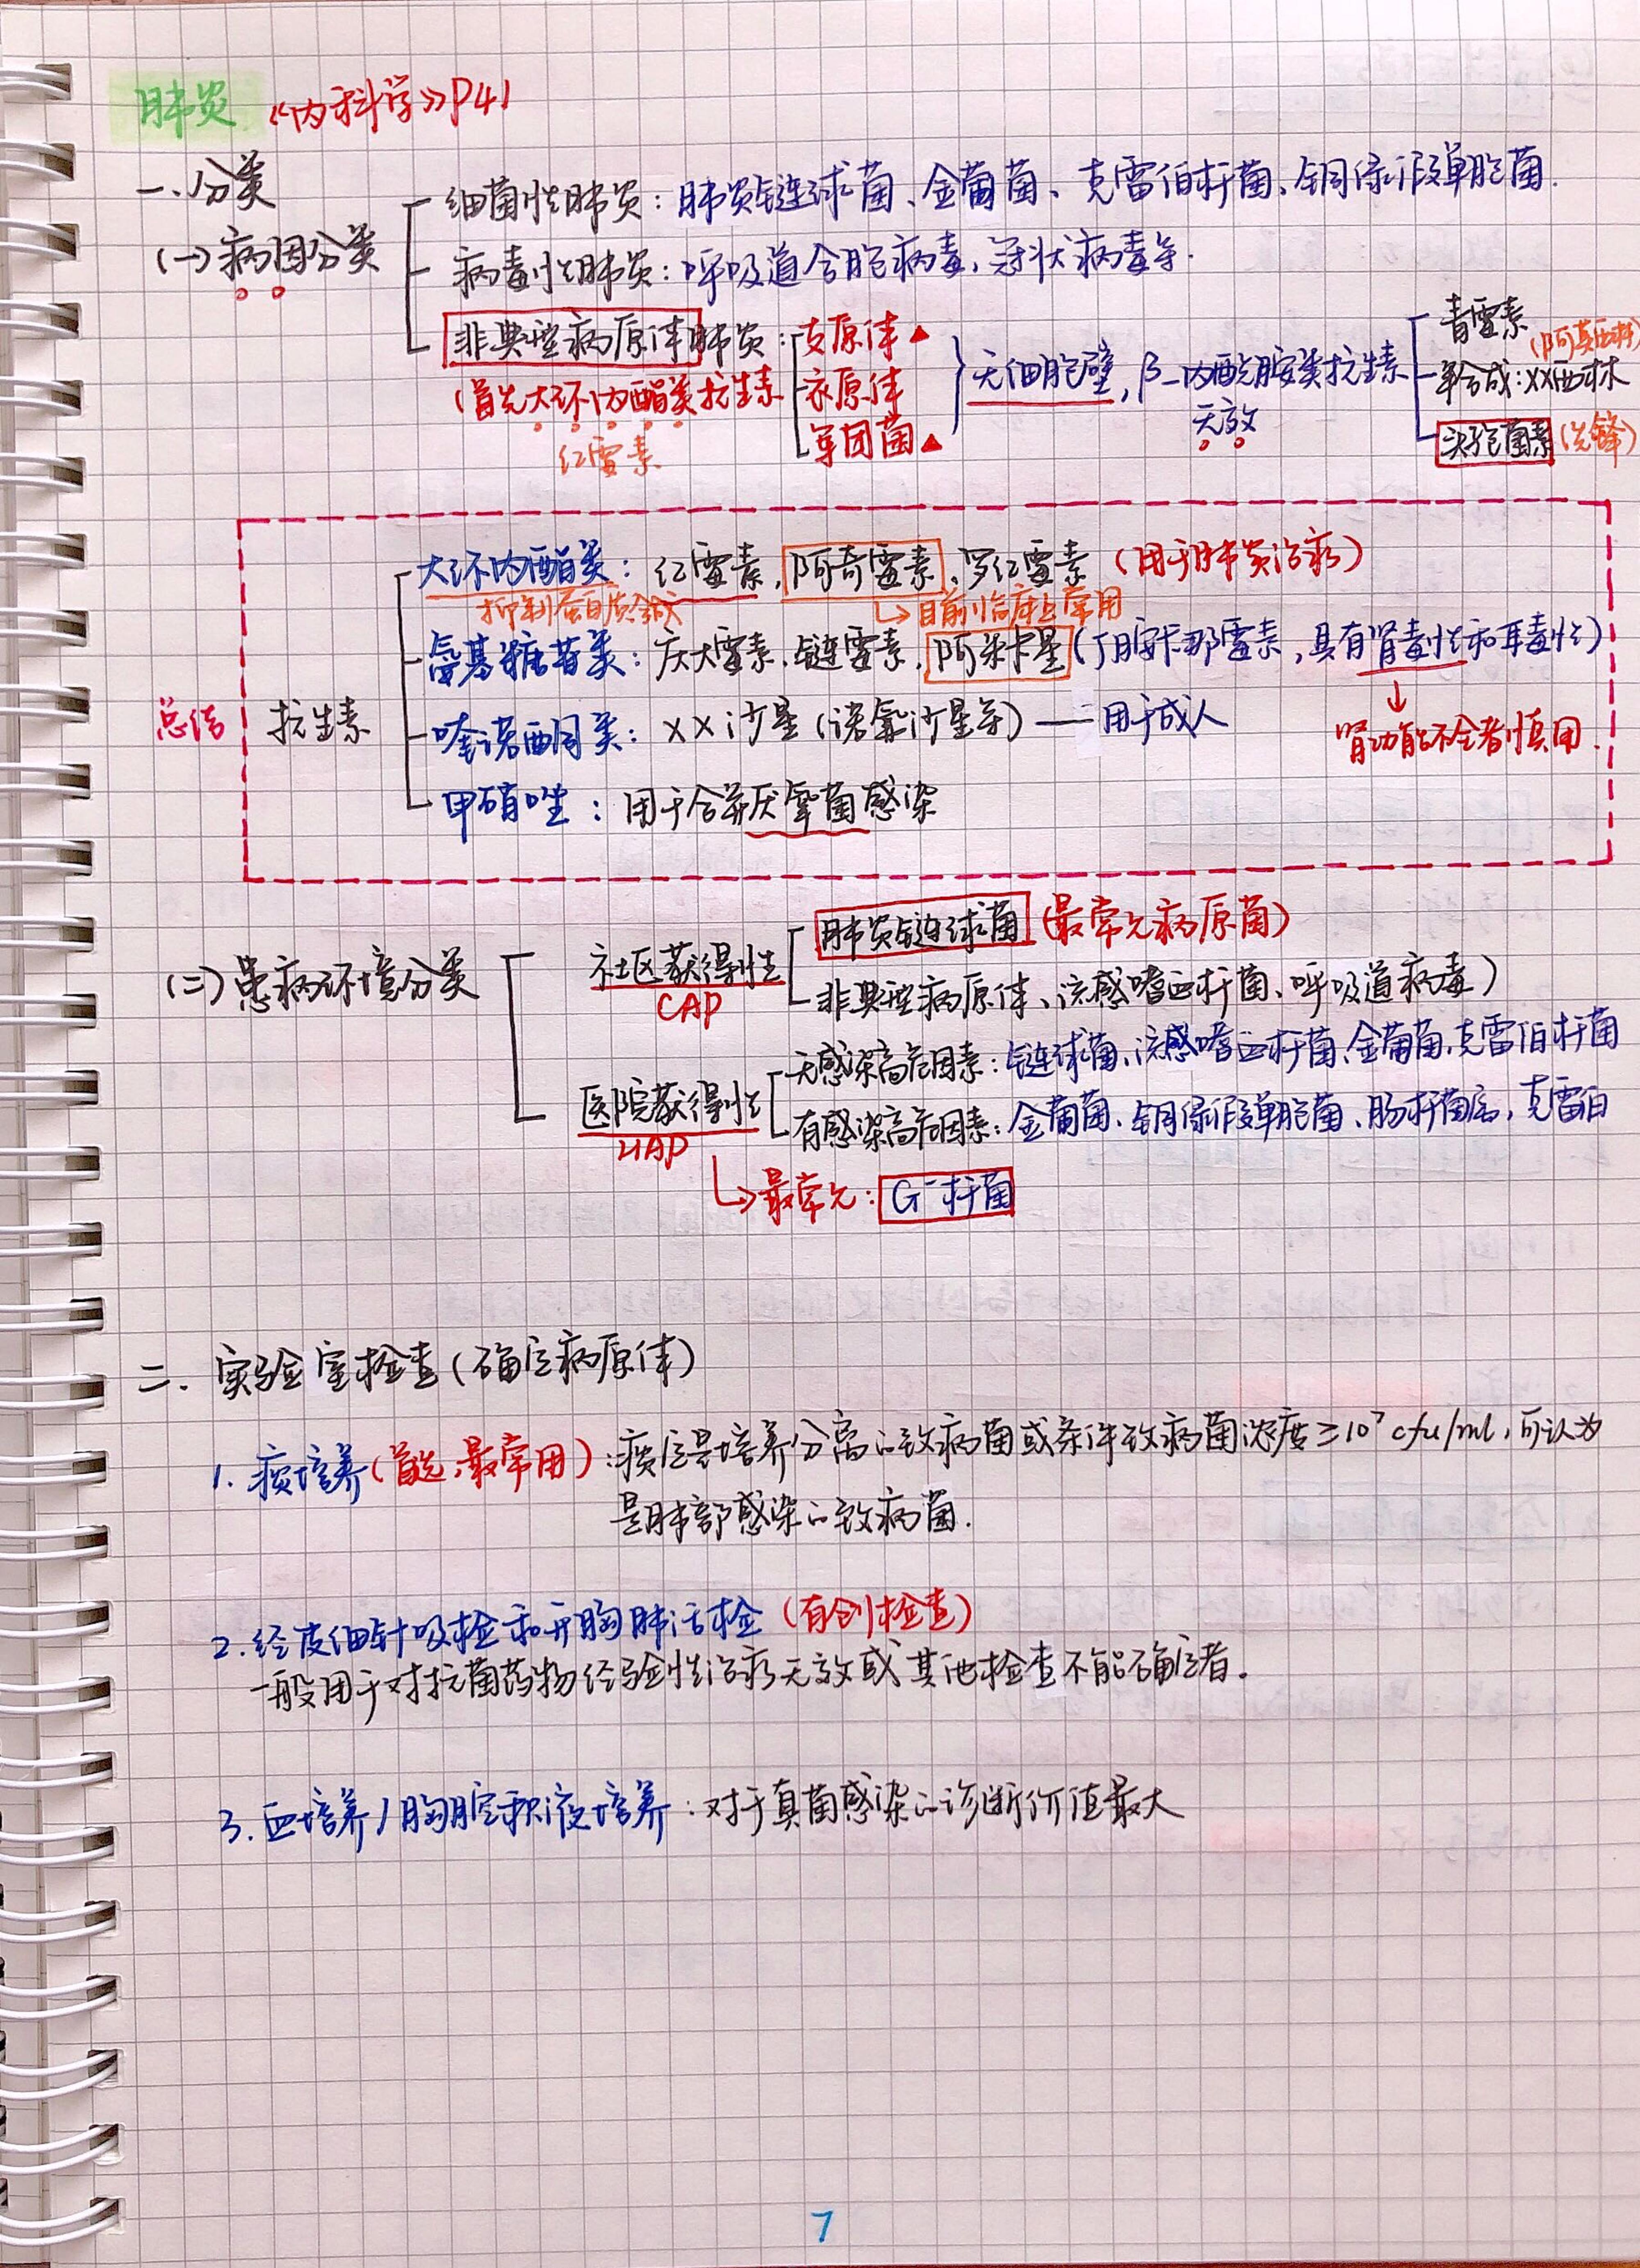 肺炎 《内科学》P41
一.分类
(一)病因分类
细菌性肺炎：肺炎链球菌、金葡菌、克雷伯杆菌、铜绿假单胞菌.
病毒性肺炎：呼吸道合胞病毒,冠状病毒等.
非典型病原体肺炎：支原体▲
(首选大环内酯类抗生素 衣原体
红霉素
军团菌▲
无细胞壁,β-内酰胺类抗生素
无效
青霉素
(阿莫西林)
半合成:XX西林
头孢菌素(先锋)
总结 抗生素
大环内酯类：红霉素,阿奇霉素,罗红霉素(用于肺炎治疗)
抑制蛋白质合成 →目前临床上常用
氨基糖苷类：庆大霉素,链霉素,阿米卡星(丁胺卡那霉素,具有肾毒性和耳毒性)
↓
肾功能不全者慎用.
喹诺酮类：XX沙星(诺氟沙星等)——用于成人
甲硝唑：用于合并厌氧菌感染
(二)患病环境分类
社区获得性
CAP
肺炎链球菌(最常见病原菌)
非典型病原体、流感嗜血杆菌、呼吸道病毒)
医院获得性
HAP
无感染高危因素：链球菌、流感嗜血杆菌、金葡菌、克雷伯杆菌
有感染高危因素：金葡菌、铜绿假单胞菌、肠杆菌属,克雷白
→最常见：G⁻杆菌
二.实验室检查(确定病原体)
1.痰培养(首选,最常用)：痰定量培养分离的致病菌或条件致病菌浓度≥10⁷cfu/ml,可认为
是肺部感染的致病菌.
2.经皮细针吸检和开胸肺活检(有创检查)
一般用于对抗菌药物经验性治疗无效或其他检查不能确定者.
3.血培养/胸腔积液培养：对于真菌感染的诊断价值最大
7